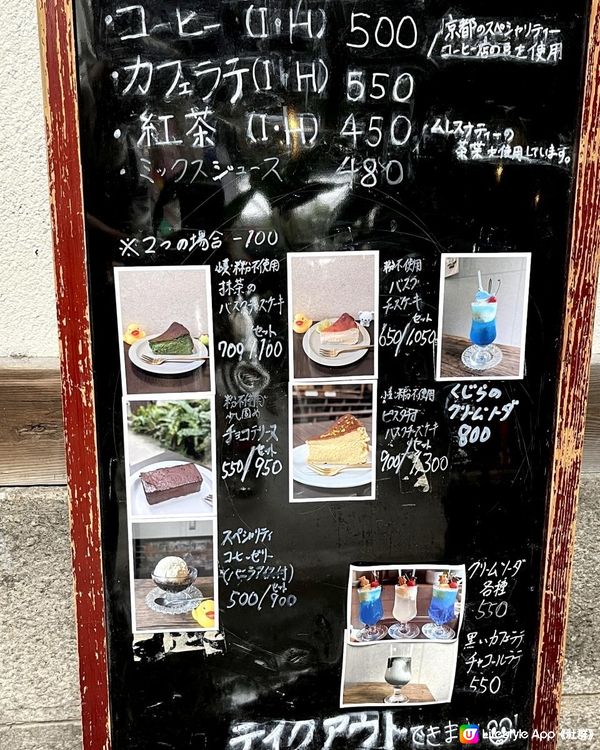 ・コーヒー(I・H) 500
京都のスペシャリティー
コーヒー店の豆を使用
・カフェラテ(I・H) 550
・紅茶(I・H) 450
ムレスナティーの
茶葉を使用しています。
・ミックスジュース 480
※2つの場合 -100
抹茶の
バスクチーズケーキ
セット
700/1,100
粉不使用
バスク
チーズケーキ
セット
650/1,050
くじらの
クリームソーダ
800
粉不使用
チョコテリーヌ
セット
550/950
ピスタチオ
バスクチーズケーキ
セット
900/1,300
スペシャリティ
コーヒーゼリー
(バニラアイス付)
セット
500/900
クリームソーダ
各種
550
黒いカフェラテ
チャコールラテ
550
テイクアウトできます
U Lifestyle App